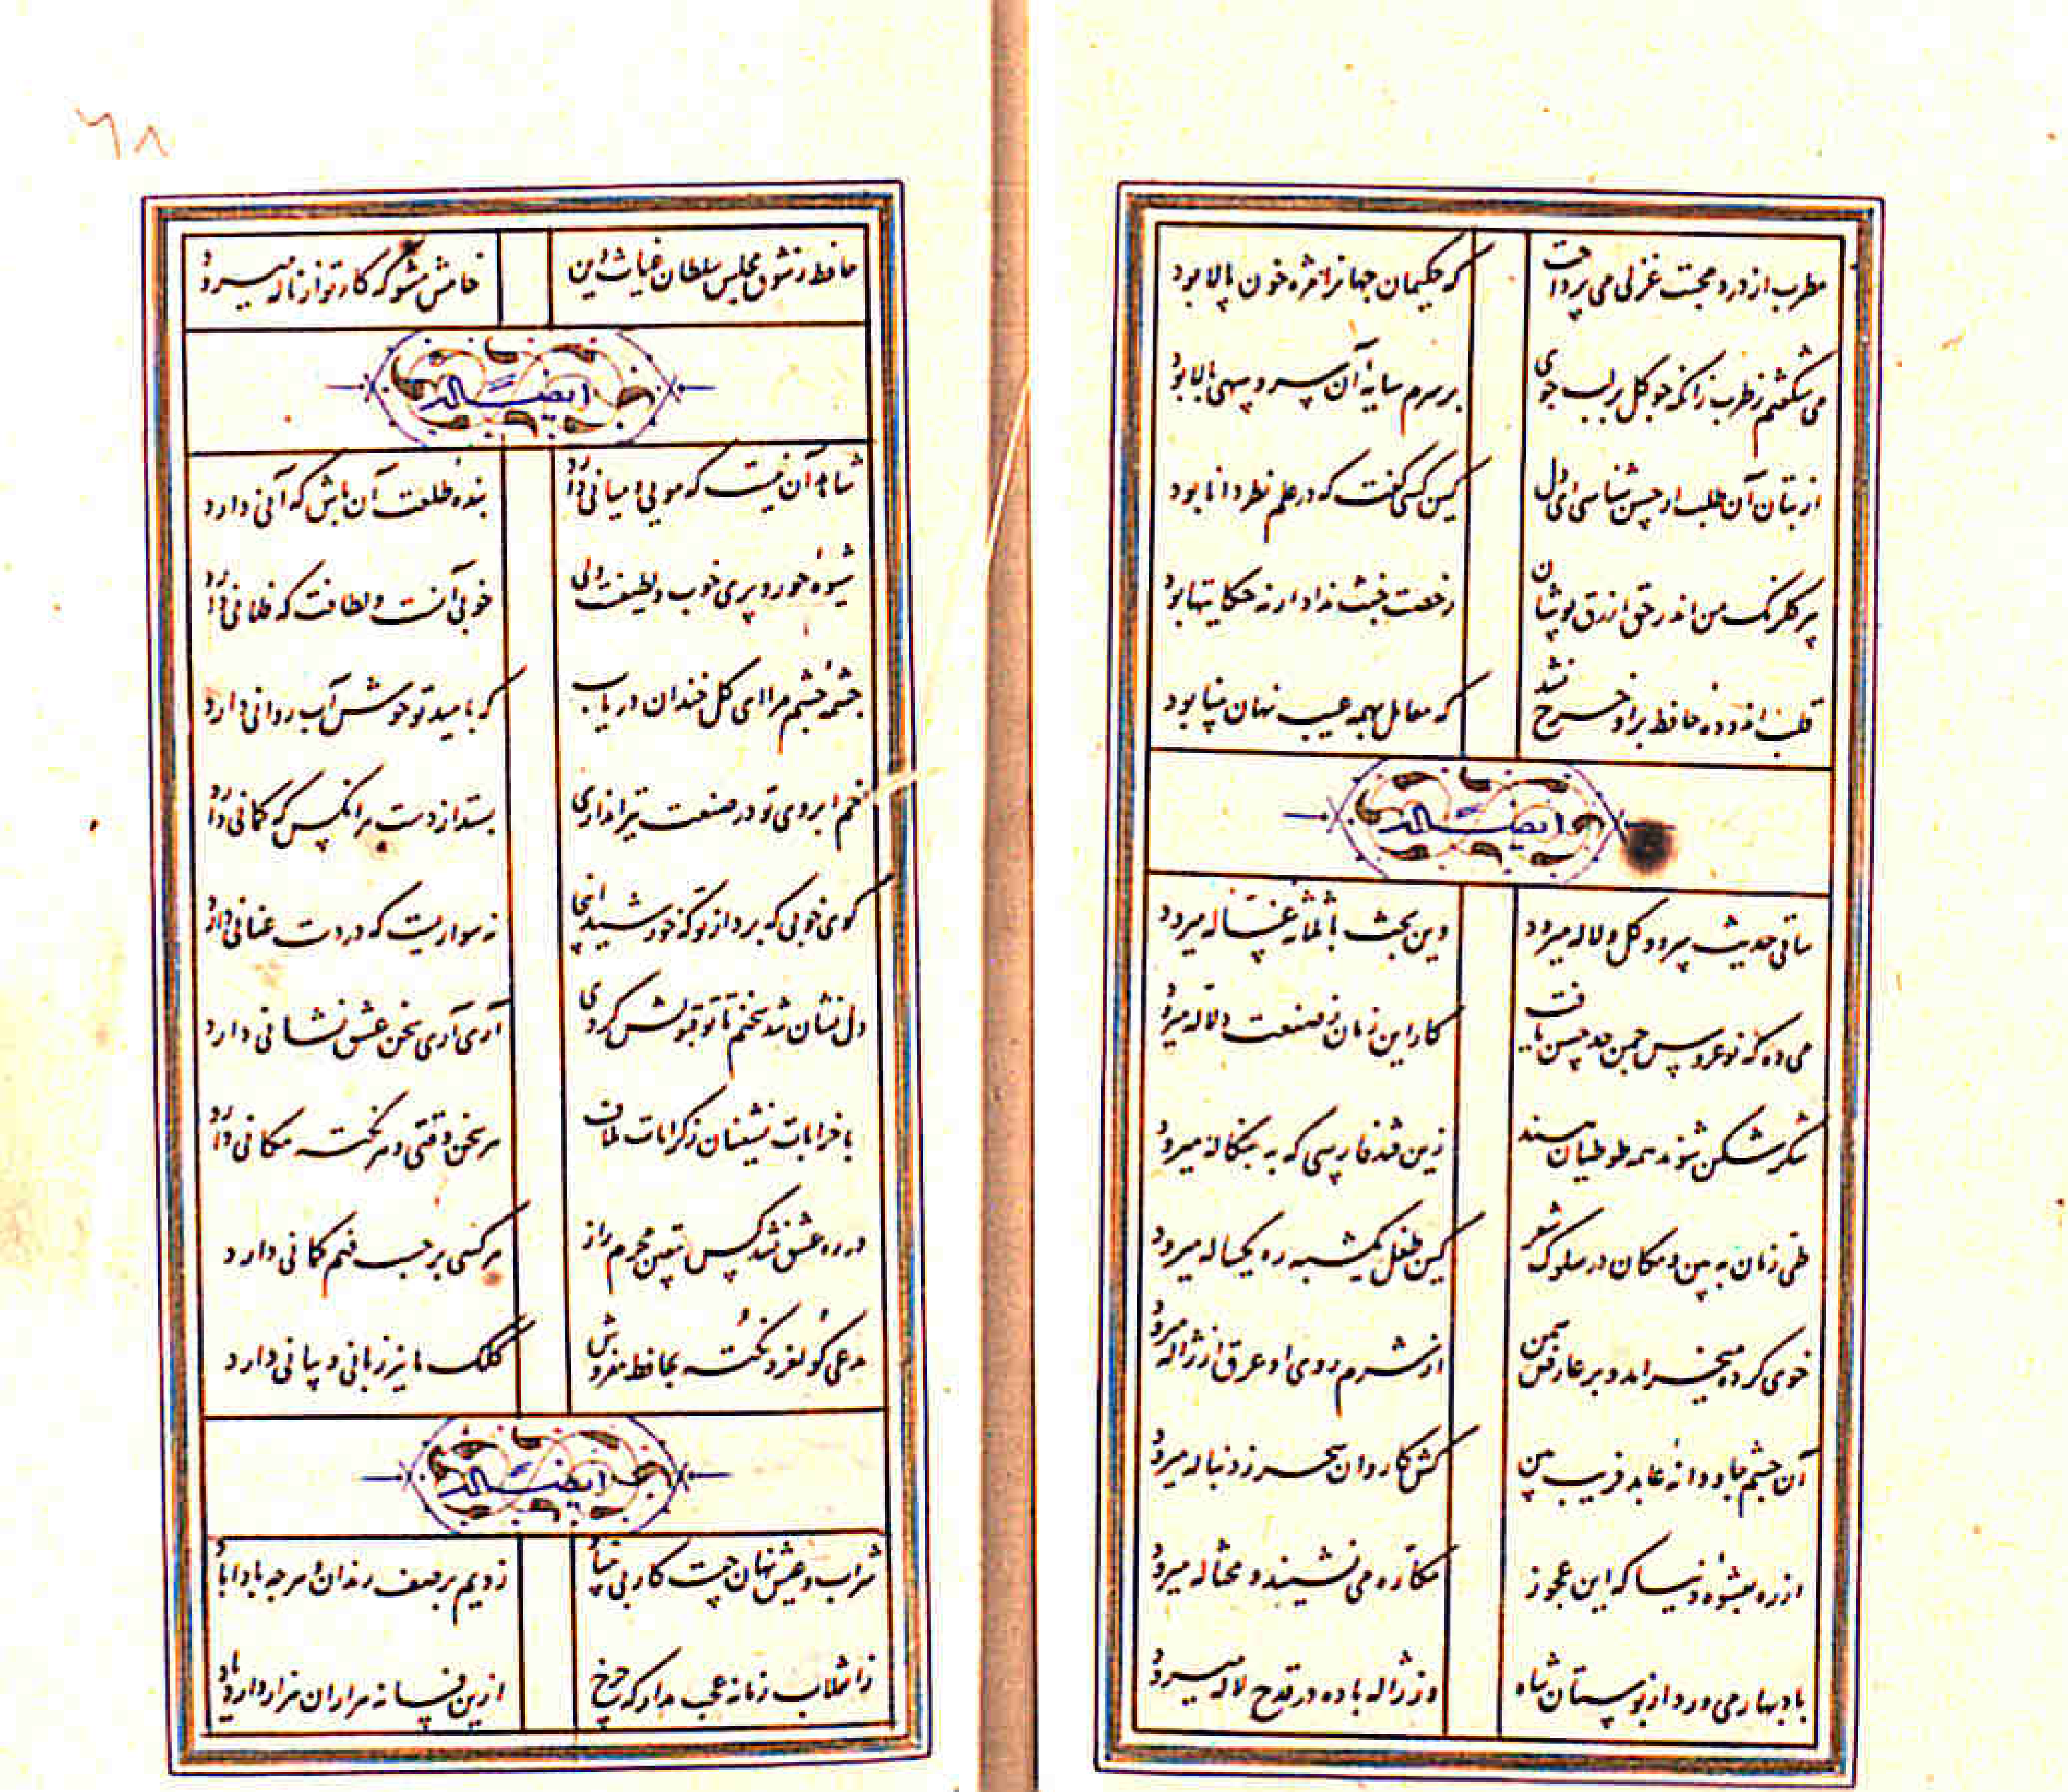 مطرب از درد محبت غزلی می پرداخت که حکیمان جهانرا مژه خون پالا بود
می شکفتم ز طرب زانکه چو کل بر لب جوی بر سرم سایهٔ آن سرو سهی بالا بود
از بتان آن طلب ار حسن شناسی ای دل کین کسی گفت که در علم نظر دانا بود
پیر کلرنک من اندر حق ازرق پوشان رخصت خبث نداد ار نه حکایتها بود
قلب اندوده حافظ بر او خرج نشد که معامل بهمه عیب نهان بینا بود
ایضاً له
ساقی حدیث سرو و کل و لاله میرود وین بحث با ثلاثهٔ غساله میرود
می ده که نوعروس چمن حد حسن یافت کار این زمان ز صنعت دلاله میرود
شکر شکن شوند همه طوطیان هند زین قند فارسی که به بنکاله میرود
طی زمان ببین و مکان در سلوک شعر کین طفل یکشبه ره یکساله میرود
خوی کرده میخرامد و بر عارض سمن از شرم روی او عرق از ژاله میرود
آن چشم جاودانهٔ عابد فریب بین کش کاروان سحر ز دنباله میرود
از ره بعشوهٔ دنیا که این عجوز مکاره می نشیند و محتاله میرود
باد بهار می وزد از بوستان شاه وز ژاله باده در قدح لاله میرود
٦٨
حافظ ز شوق مجلس سلطان غیاث دین خامش مشو که کار تو از ناله میرود
ایضاً له
شاهد آن نیست که مویی و میانی دارد بندهٔ طلعت آن باش که آنی دارد
شیوهٔ حور و پری خوب و لطیفست ولی خوبی آنست و لطافت که فلانی دارد
چشمهٔ چشم مرا ای کل خندان دریاب که بامید تو خوش آب روانی دارد
خم ابروی تو در صنعت تیراندازی بستد از دست هر آنکس که کمانی دارد
کوی خوبی که برد از تو که خورشید اینجا نه سواریست که در دست عنانی دارد
دل نشان شد سخنم تا تو قبولش کردی آری آری سخن عشق نشانی دارد
با خرابات نشینان ز کرامات ملاف هر سخن وقتی و هر نکته مکانی دارد
در ره عشق نشد کس بیقین محرم راز هر کسی بر حسب فهم کمانی دارد
مدعی کو لغز و نکته بحافظ مفروش کلک ما نیز زبانی و بیانی دارد
ایضاً له
شراب و عیش نهان چیست کار بی بنیاد زدیم بر صف رندان و هر چه بادا باد
ز انقلاب زمانه عجب مدار که چرخ ازین فسانه هزاران هزار دارد یاد